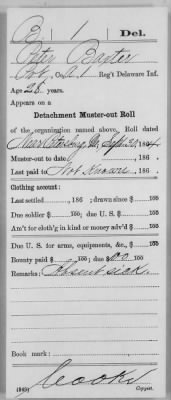 B | 1 | Del.
Peter Baxter
Pvt., Co. A, 1 Reg't Delaware Inf.
Age 28 years.
Appears on a
Detachment Muster-out Roll
of the organization named above. Roll dated
Near Petersburg, Va. Sept. 30, 1864.
Muster-out to date , 186 .
Last paid to Not Known, 186 .
Clothing account:
Last settled , 186 ; drawn since $ 100
Due soldier $ 100; due U. S. $ 100
Am't for cloth'g in kind or money adv'd $ 100
Due U. S. for arms, equipments, &c., $ 100
Bounty paid $ 100; due $ 100
Remarks: Absent sick.
Book mark:
Cooke
(840) Copyist.